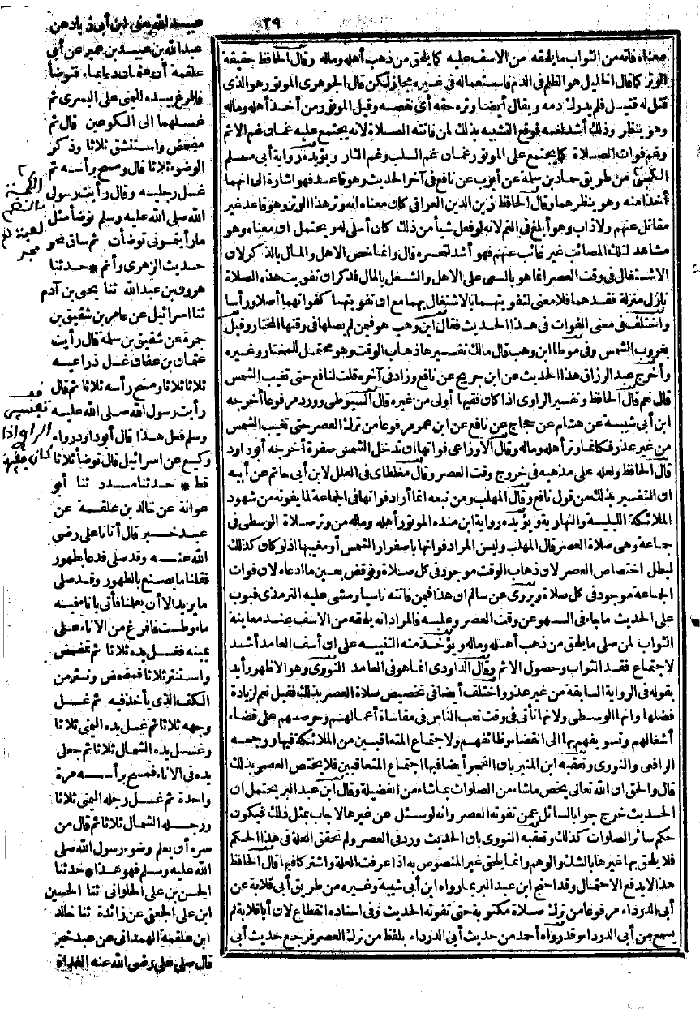 ٢٩
معناه فاته من الثواب ما يلحقه من الاسف عليه كما يلحق من ذهب أهله وماله وقال الحافظ حقيقة
الوتر كما قال الخليل هو الظلم في الدم فاستعماله في غيره مجاز لكن قال الجوهرى الموتور هو الذى
قتل له قتيل فلم يدرك دمه ويقال أيضا وتره حقه أى نقصه وقيل الموتور من أخذ أهله وماله
وهو ينظر وذلك أشد لغمه فوقع التشبيه بذلك لمن فاتته الصلاة لانه يجتمع عليه غمان غم الاثم
وغم فوات الصلاة كما يجتمع على الموتور غمان غم السلب وغم الثار ويؤيده رواية أبى مسلم
الكجى من طريق حماد بن سلمة عن أيوب عن نافع في آخر الحديث وهو قاعد فهو اشارة الى انهما
أخذا منه وهو ينظرهما وقال الحافظ زين الدين العراقى كان معناه انه وتر هذا الوتر وهو قاعد غير
مقاتل عنهم ولا ذاب وهو أبلغ في الغم لانه لو فعل شيأ من ذلك كان أسلى له ويحتمل ان معناه وهو
مشاهد لتلك المصائب غير غائب عنهم فهو أشد لتحسره قال وانما خص الاهل والمال بالذكر لان
الاشتغال في وقت العصر انما هو بالسعى على الاهل والشغل بالمال فذكر ان تفويت هذه الصلاة
نازل منزلة فقدهما فلا معنى لتفويتهما بالاشتغال بهما مع ان تفويتها كفواتهما أصلا ورأسا
واختلف في معنى الفوات في هذا الحديث فقال ابن وهب هو فيمن لم يصلها في وقتها المختار وقيل
بغروب الشمس وفى موطأ ابن وهب قال مالك تفسيرها ذهاب الوقت وهو محتمل للمختار وغيره
وأخرج عبد الرزاق هذا الحديث عن ابن جريج عن نافع وزاد فى آخره قلت لنافع حتى تغيب الشمس
قال نعم قال الحافظ وتفسير الراوى اذا كان فقيها أولى من غيره قال السيوطى وورد مرفوعا أخرجه
ابن أبى شيبة عن هشام عن حجاج عن نافع عن ابن عمر مرفوعا من ترك العصر حتى تغيب الشمس
من غير عذر فكانما وتر أهله وماله وقال الاوزاعى فواتها ان تدخل الشمس صفرة أخرجه أبو داود
قال الحافظ ولعله على مذهبه فى خروج وقت العصر وقال مغلطاى فى العلل لابن أبى حاتم عن أبيه
ان التفسير بذلك من قول نافع وقال المهلب ومن تبعه انما أراد فواتها فى الجماعة لما يفوته من شهود
الملائكة الليلية والنهارية ويؤيده رواية ابن منده الموتور أهله وماله من وتر صلاة الوسطى فى
جماعة وهى صلاة العصر قال المهلب وليس المراد فواتها باصفرار الشمس أو مغيبها اذ لو كان كذلك
لبطل اختصاص العصر لان ذهاب الوقت موجود فى كل صلاة ونوقض بعين ما ادعاه لان فوات
الجماعة موجود فى كل صلاة ويروى عن سالم ان هذا فيمن فاتته ناسيا ومشى عليه الترمذى فبوب
على الحديث ما جاء فى السهو عن وقت العصر وعليه فالمراد انه يلحقه من الاسف عند معاينة
الثواب لمن صلى ما يلحق من ذهب أهله وماله ويؤخذ منه التنبيه على ان أسف العامد أشد
لاجتماع فقد الثواب وحصول الاثم وقال الداودى انما هو فى العامد النووى وهو الاظهر وأيد
بقوله فى الرواية السابقة من غير عذر واختلف أيضا فى تخصيص صلاة العصر بذلك فقيل نعم لزيادة
فضلها وانها الوسطى ولانها تأتى فى وقت تعب الناس فى مقاساة أعمالهم وحرصهم على قضاء
أشغالهم وتسويفهم بها الى انقضاء وظائفهم ولاجتماع المتعاقبين من الملائكة فيها ورجحه
الرافعى والنووى وتعقبه ابن المنير بان الفجر أيضا فيها اجتماع المتعاقبين فلا يختص العصر بذلك
قال والحق ان الله تعالى يختص ما شاء من الصلوات بما شاء من الفضيلة وقال ابن عبد البر يحتمل ان
الحديث خرج جوابا لسائل عمن تفوته العصر وانه لو سئل عن غيرها لاجاب بمثل ذلك فيكون
حكم سائر الصلوات كذلك وتعقبه النووى بان الحديث ورد فى العصر ولم تتحقق العلة فى هذا الحكم
فلا يلحق بها غيرها بالشك والوهم وانما يلحق غير المنصوص به اذا عرفت العلة واشتركا فيها قال الحافظ
هذا لا يدفع الاحتمال وقد احتج ابن عبد البر بما رواه ابن أبى شيبة وغيره من طريق أبى قلابة عن
أبى الدرداء مرفوعا من ترك صلاة مكتوبة حتى تفوته الحديث وفى اسناده انقطاع لان أبا قلابة لم
يسمع من أبى الدرداء وقد رواه أحمد من حديث أبى الدرداء بلفظ من ترك العصر فرجع حديث أبى
عبيد الله يعنى ابن أبى زياد عن
عبد الله بن عبيد بن عمير عن أبى
علقمة أن عثمان دعا بماء فتوضأ
فافرغ بيده اليمنى على اليسرى ثم
غسلهما الى الكوعين قال ثم
مضمض واستنشق ثلاثا وذكر
الوضوء ثلاثا قال ومسح برأسه ثم
غسل رجليه وقال رأيت رسول
الله صلى الله عليه وسلم توضأ مثل
ما رأيتمونى توضأت ثم ساق نحو
حديث الزهرى وأتم * حدثنا
هرون بن عبد الله ثنا يحيى بن آدم
ثنا اسرائيل عن عامر بن شقيق بن
جمرة عن شقيق بن سلمة قال رأيت
عثمان بن عفان غسل ذراعيه
ثلاثا ثلاثا ومسح رأسه ثلاثا ثم قال
رأيت رسول الله صلى الله عليه
وسلم فعل هذا قال أبو داود ورواه
وكيع عن اسرائيل قال توضأ ثلاثا
قط * حدثنا مسدد ثنا أبو
عوانة عن خالد بن علقمة عن
عبد خير قال أتانا على رضى
الله عنه وقد صلى فدعا بطهور
فقلنا ما يصنع بالطهور وقد صلى
ما يريد الا أن يعلمنا فأتى باناء فيه
ماء وطست فافرغ من الاناء على
يمينه فغسل يده ثلاثا ثم تمضمض
واستنثر ثلاثا فمضمض ونثر من
الكف الذى يأخذ فيه ثم غسل
وجهه ثلاثا ثم غسل يده اليمنى ثلاثا
وغسل يده الشمال ثلاثا ثم جعل
يده فى الاناء فمسح برأسه مرة
واحدة ثم غسل رجله اليمنى ثلاثا
ورجله الشمال ثلاثا ثم قال من
سره أن يعلم وضوء رسول الله صلى
الله عليه وسلم فهو هذا * حدثنا
الحسن بن على الحلوانى ثنا الحسين
ابن على الجعفى عن زائدة ثنا خالد
ابن علقمة الهمدانى عن عبد خير
قال صلى على رضى الله عنه الغداة
تفسير
الراوى اذا
كان فقيها